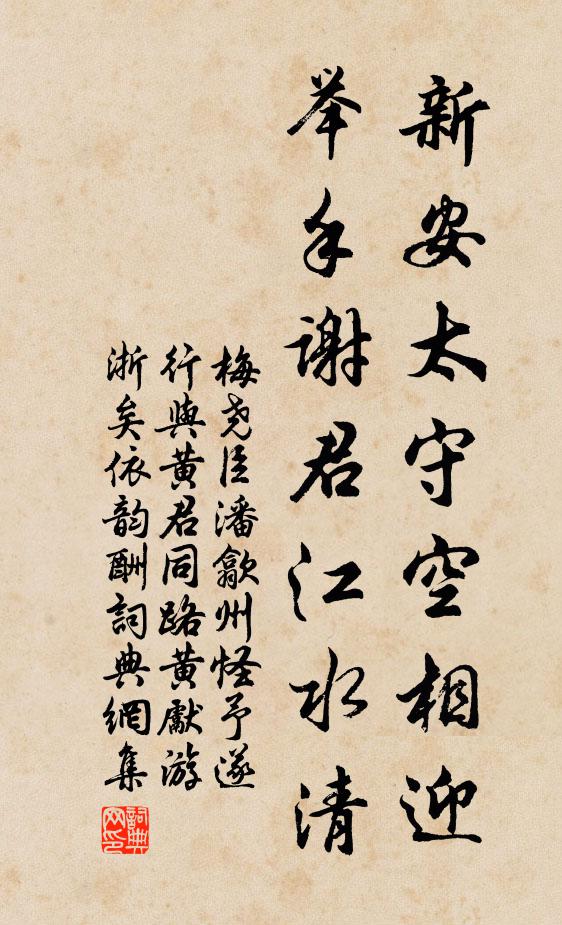 新安太守空相迎
举手谢君江水清
梅尧臣潘歙州怪予遂
行與黄君同路黄獻游
浙矣依韵酬詞典網集
詞典网印